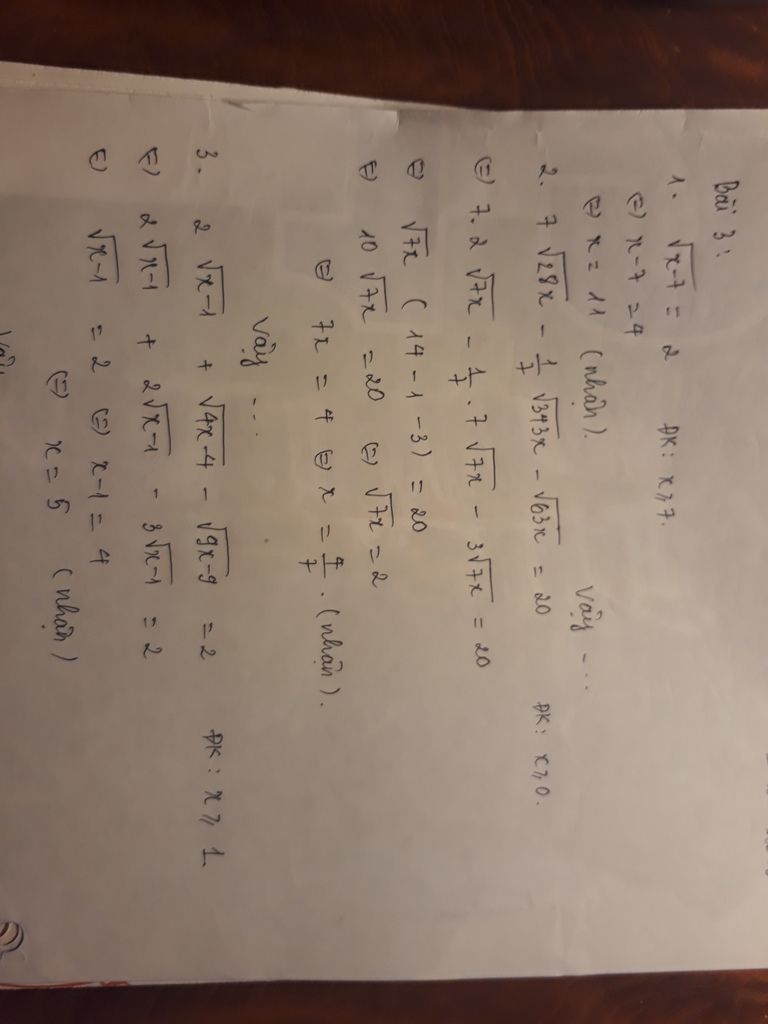 Bài 3:
1. √x-7 = 2 ĐK: x ⩾ 7.
⇔ x-7 = 4
⇔ x = 11 (nhận). Vậy ...
2. 7 √28x - 1/7 √343x - √63x = 20 ĐK: x ⩾ 0.
⇔ 7.2 √7x - 1/7 . 7 √7x - 3√7x = 20
⇔ √7x (14 - 1 - 3) = 20
⇔ 10 √7x = 20 ⇔ √7x = 2
⇔ 7x = 4 ⇔ x = 4/7 . (nhận).
Vậy ...
3. 2 √x-1 + √4x-4 - √9x-9 = 2 ĐK: x ⩾ 1
⇔ 2 √x-1 + 2√x-1 - 3√x-1 = 2
⇔ √x-1 = 2 ⇔ x-1 = 4
⇔ x = 5 (nhận)